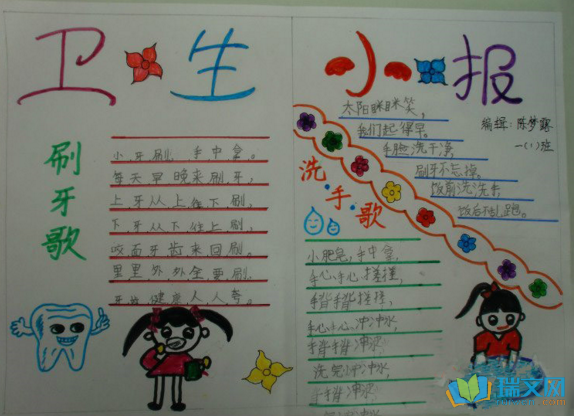 卫生小报
编辑:陈梦露
一(1)班
刷牙歌
小牙刷,手中拿。
每天早晚来刷牙,
上牙从上往下刷,
下牙从下往上刷,
咬面牙齿来回刷。
里里外外全要刷,
健康人人夸。
太阳眯眯笑,
我们起得早。
手脸洗干净,
刷牙不忘掉。
饭前洗洗手,
饭后不乱跑。
洗手歌
小肥皂,手中拿,
手心手心搓搓,
手背手背搓搓,
手心手心冲冲水,
手背手背冲冲水,
洗完冲冲水
冲冲水
瑞文网